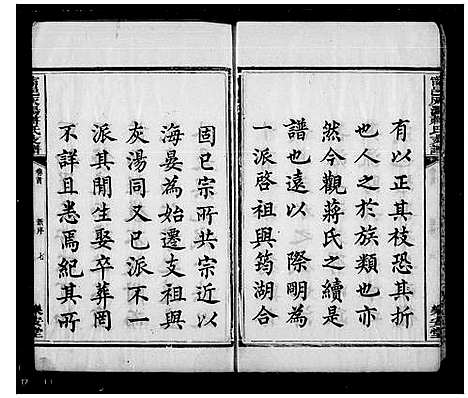 有以正其枝恐其折
也人之於族類也亦
然今觀蔣氏之續是
譜也遠以 際明為
一派啓祖興筠湖合
固已宗所共宗近以
海晏為始遷支祖與
灰湯同又已派不一
派其間生娶卒葬罔
不詳且悉焉紀其所
蔣氏支譜
卷首
序 七
樂安堂